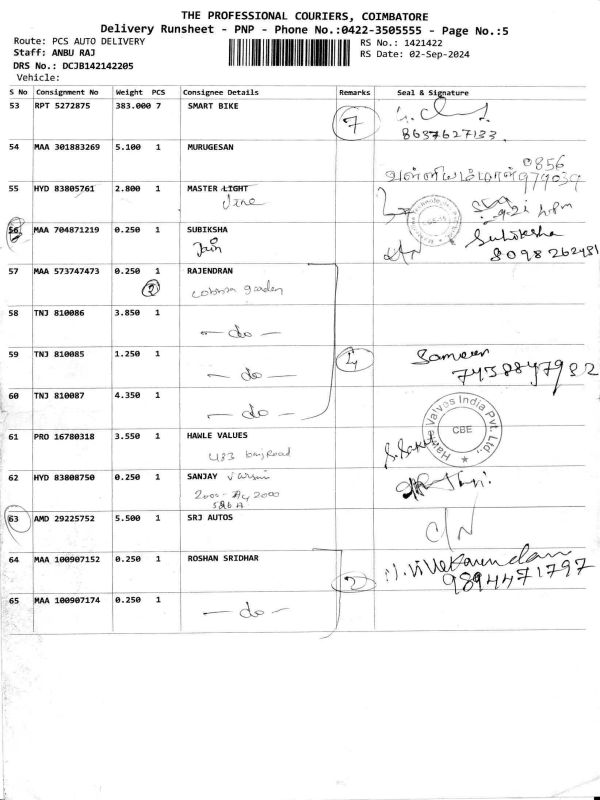 THE PROFESSIONAL COURIERS, COIMBATORE
Delivery Runsheet - PNP - Phone No.:0422-3505555 - Page No.:5
Route: PCS AUTO DELIVERY RS No.: 1421422
Staff: ANBU RAJ RS Date: 02-Sep-2024
DRS No.: DCJB142142205
Vehicle:
S No Consignment No Weight PCS Consignee Details Remarks Seal & Signature
53 RPT 5272875 383.000 7 SMART BIKE 7
8637627133
54 MAA 301883269 5.100 1 MURUGESAN
வள்ளியம்மாள்
55 HYD 83805761 2.800 1 MASTER LIGHT
56 MAA 704871219 0.250 1 SUBIKSHA Subiksha
Jain
57 MAA 573747473 0.250 1 RAJENDRAN
2
58 TNJ 810086 3.850 1
— do —
59 TNJ 810085 1.250 1 4 Sameer
— do —
60 TNJ 810087 4.350 1
— do —
Hawle Valves India Pvt. Ltd.,
CBE
61 PRO 16780318 3.550 1 HAWLE VALUES
62 HYD 83808750 0.250 1 SANJAY
63 AMD 29225752 5.500 1 SRJ AUTOS
C/N
64 MAA 100907152 0.250 1 ROSHAN SRIDHAR 2
9894471797
65 MAA 100907174 0.250 1
— do —